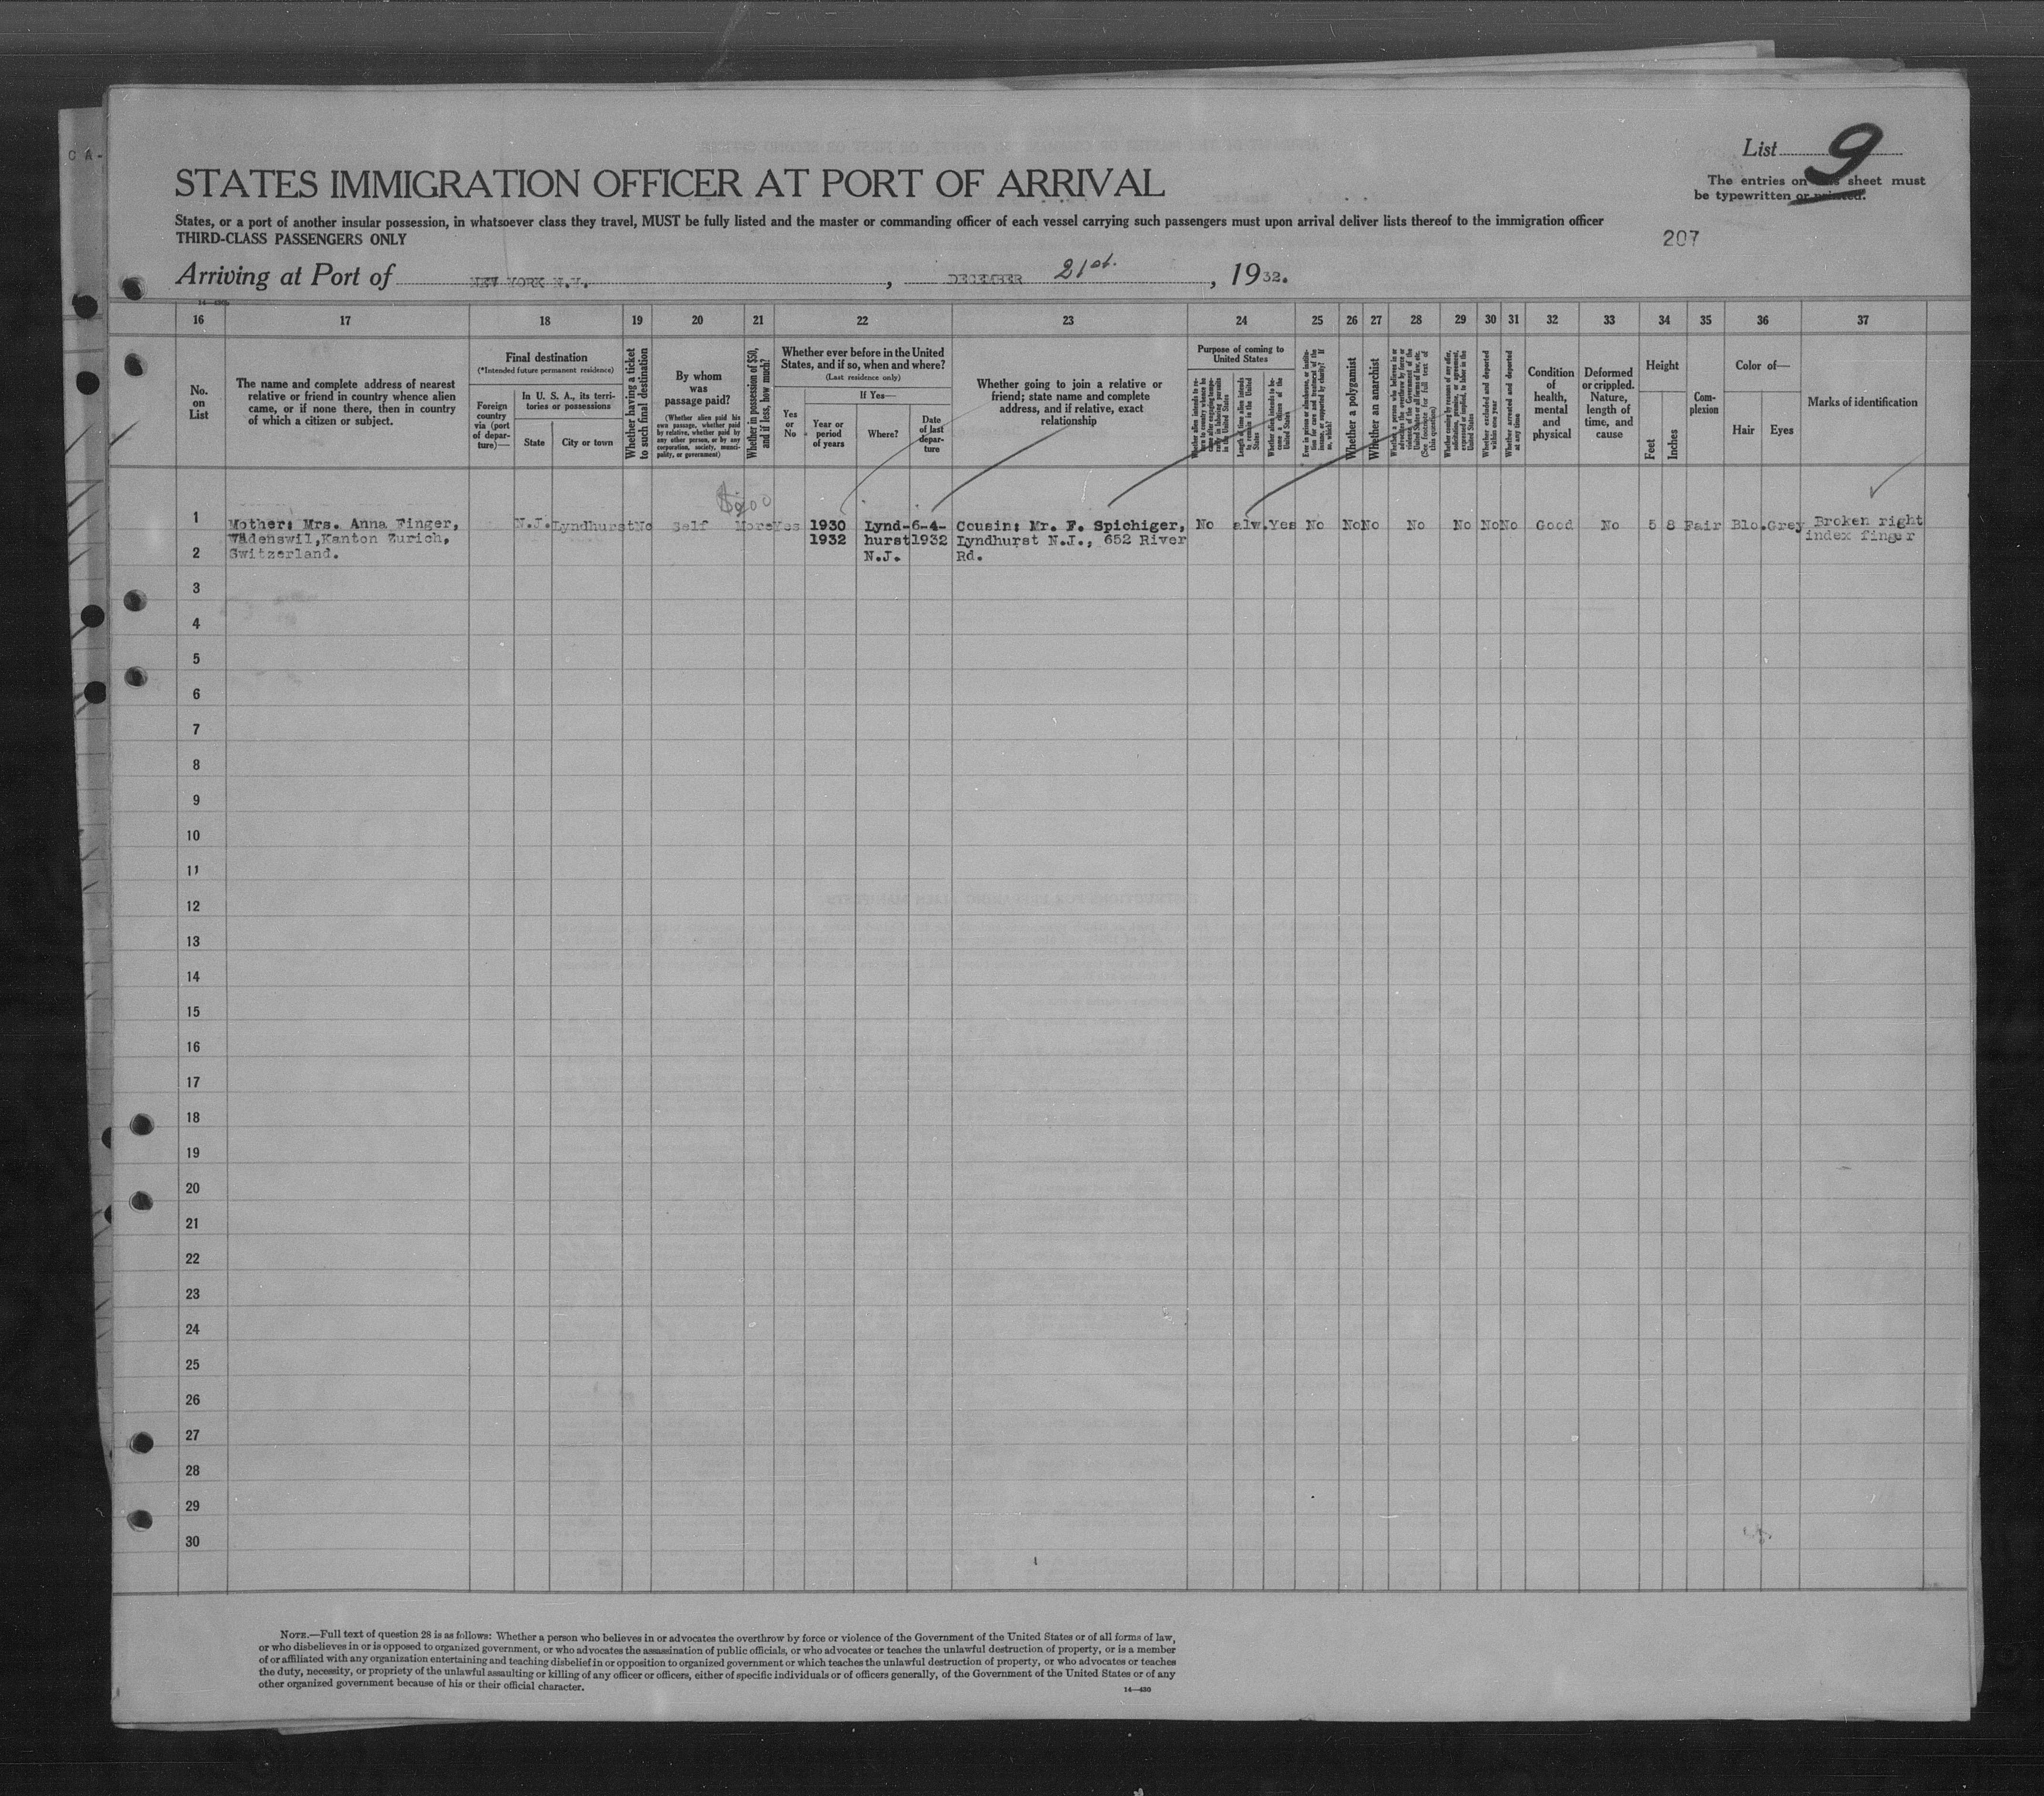 C A-
List 9
The entries on this sheet must
be typewritten or printed.
STATES IMMIGRATION OFFICER AT PORT OF ARRIVAL
States, or a port of another insular possession, in whatsoever class they travel, MUST be fully listed and the master or commanding officer of each vessel carrying such passengers must upon arrival deliver lists thereof to the immigration officer
THIRD-CLASS PASSENGERS ONLY
207
Arriving at Port of NEW YORK N.Y., DECEMBER 21st., 1932.
16 17 18 19 20 21 22 23 24 25 26 27 28 29 30 31 32 33 34 35 36 37
No. on List
The name and complete address of nearest
relative or friend in country whence alien
came, or if none there, then in country
of which a citizen or subject.
Final destination
(*Intended future permanent residence)
Foreign country via (port of departure)—
In U. S. A., its territories or possessions
State
City or town
Whether having a ticket to such final destination
By whom was passage paid?
(Whether alien paid his own passage, whether paid by relative, whether paid by any other person, or by any corporation, society, municipality, or government)
Whether in possession of $50, and if less, how much?
Whether ever before in the United
States, and if so, when and where?
(Last residence only)
Yes or No
If Yes—
Year or period of years
Where?
Date of last departure
Whether going to join a relative or
friend; state name and complete
address, and if relative, exact
relationship
Purpose of coming to United States
Length of time alien intends to remain in the United States
Whether alien intends to become a citizen of the United States
Whether a polygamist
Whether an anarchist
Whether excluded and deported within one year
Whether arrested and deported at any time
Condition of health, mental and physical
Deformed or crippled. Nature, length of time, and cause
Height
Feet
Inches
Complexion
Color of—
Hair
Eyes
Marks of identification
$200
1 Mother: Mrs. Anna Finger, N.J. Lyndhurst No Self More Yes 1930 Lynd- 6-4- Cousin: Mr. F. Spichiger, No alw. Yes No No No No No No No Good No 5 8 Fair Blo. Grey Broken right
Wädenswil, Kanton Zurich, 1932 hurst 1932 Lyndhurst N.J., 652 River index finger
2 Switzerland. N.J. Rd.
3
4
5
6
7
8
9
10
11
12
13
14
15
16
17
18
19
20
21
22
23
24
25
26
27
28
29
30
NOTE.—Full text of question 28 is as follows: Whether a person who believes in or advocates the overthrow by force or violence of the Government of the United States or of all forms of law,
or who disbelieves in or is opposed to organized government, or who advocates the assassination of public officials, or who advocates or teaches the unlawful destruction of property, or is a member
of or affiliated with any organization entertaining and teaching disbelief in or opposition to organized government or which teaches the unlawful destruction of property, or who advocates or teaches
the duty, necessity, or propriety of the unlawful assaulting or killing of any officer or officers, either of specific individuals or of officers generally, of the Government of the United States or of any
other organized government because of his or their official character.
14—430